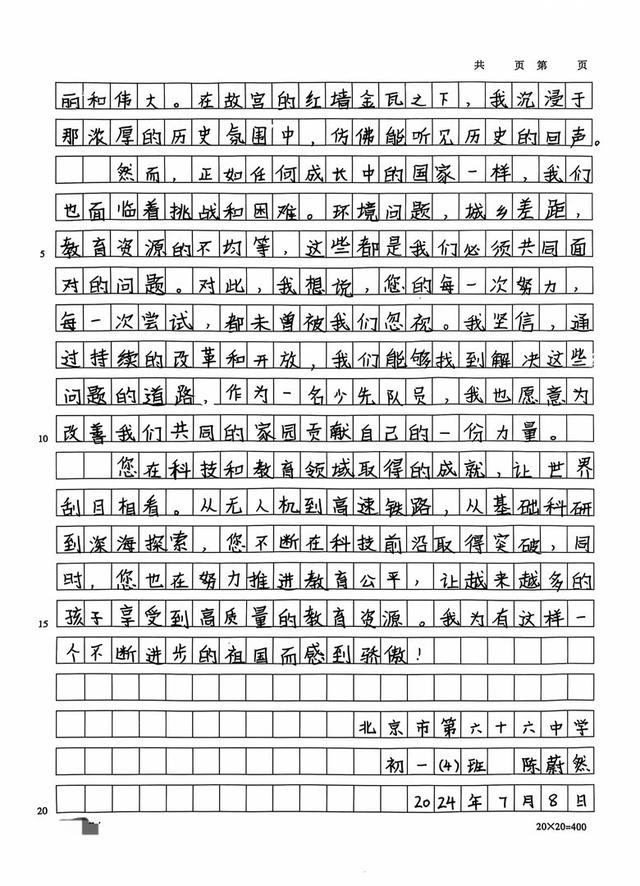 共 页 第 页
丽和伟大。在故宫的红墙金瓦之下，我沉浸于
那浓厚的历史氛围中，仿佛能听见历史的回声。
然而，正如任何成长中的国家一样，我们
也面临着挑战和困难。环境问题，城乡差距，
5 教育资源的不均等，这些都是我们必须共同面
对的问题。对此，我想说，您的每一次努力，
每一次尝试，都未曾被我们忽视。我坚信，通
过持续的改革和开放，我们能够找到解决这些
问题的道路，作为一名少先队员，我也愿意为
10 改善我们共同的家园贡献自己的一份力量。
您在科技和教育领域取得的成就，让世界
刮目相看。从无人机到高速铁路，从基础科研
到深海探索，您不断在科技前沿取得突破，同
时，您也在努力推进教育公平，让越来越多的
15 孩子享受到高质量的教育资源。我为有这样一
个不断进步的祖国而感到骄傲！
北京市第六十六中学
初一(4)班 陈蔚然
20 2024年7月8日
20×20=400